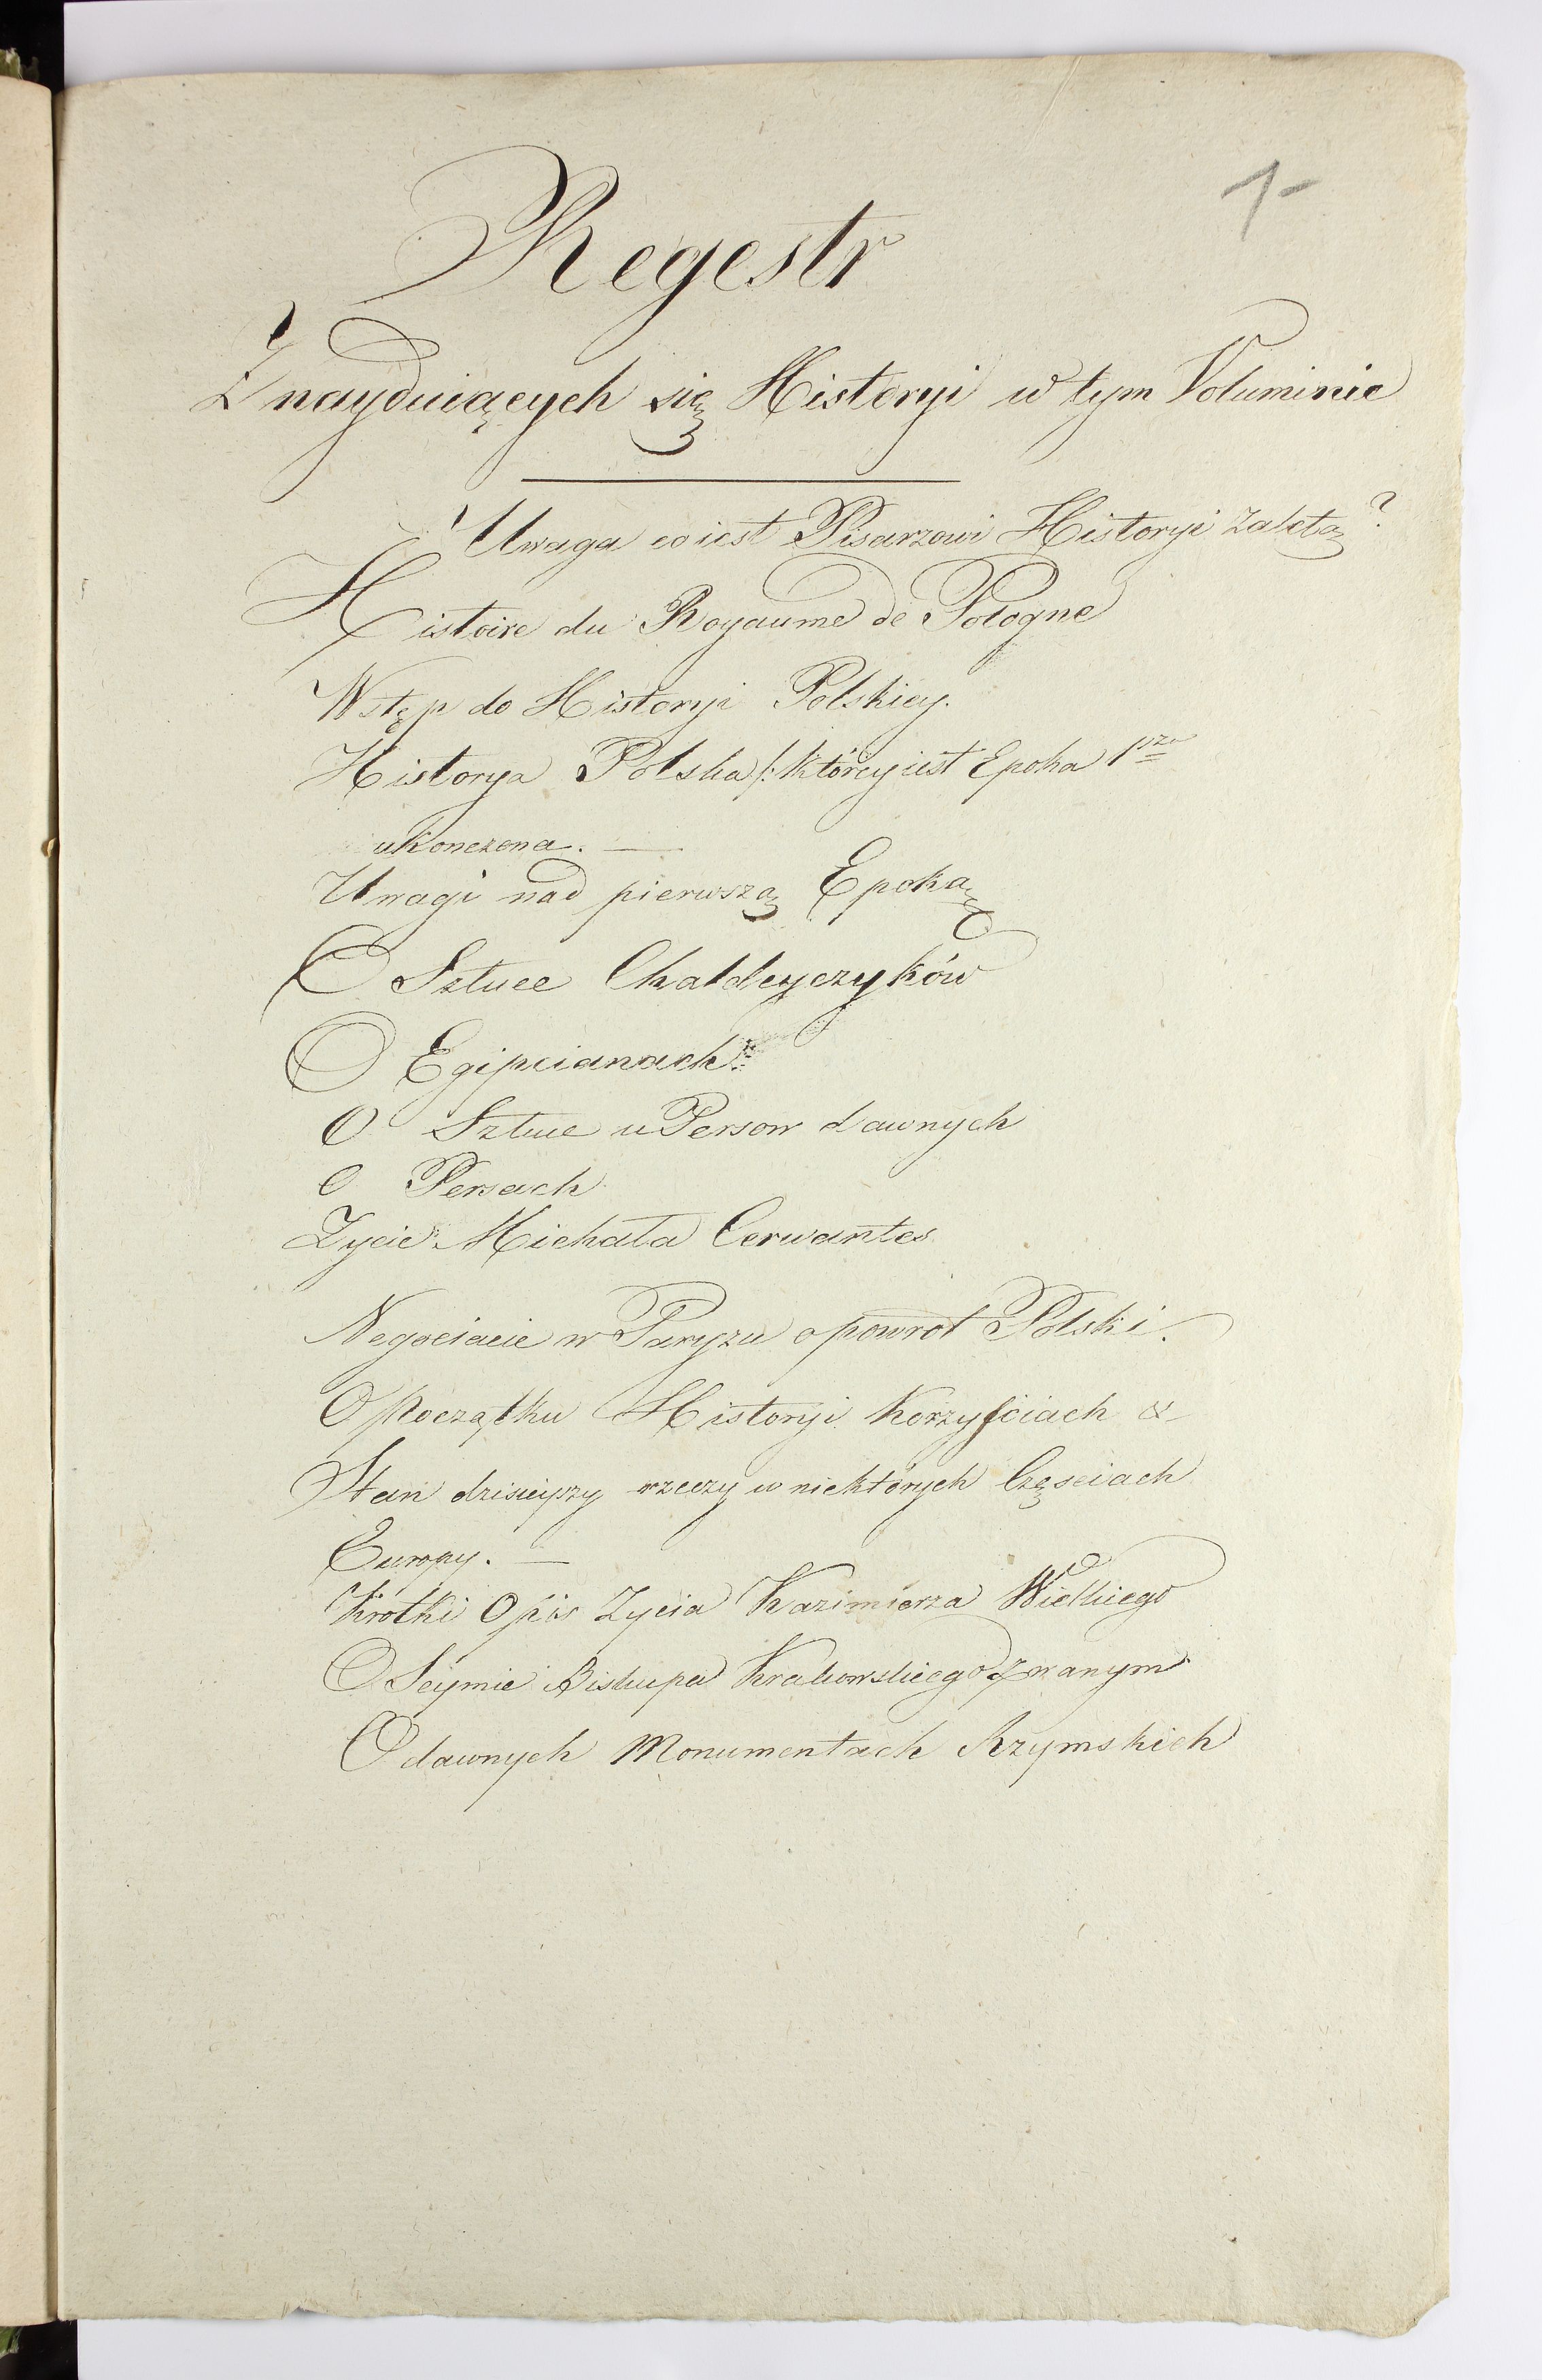 1
Regestr
Znayduiących się Historyi w tym Voluminie
Uwaga co iest Pisarzowi Historyi zaletą?
Histoire du Royaume de Pologne
Wstęp do Historyi Polskiey.
Historya Polska /: któréy iest Epoka 1sza
ukonczona. —
Uwagi nad pierwszą Epoką
O Sztuce Chaldeyczyków
O Egipcianach
O Sztuce u Persow dawnych
O Persach
Zycie Michała Cerwantes
Negociacie w Paryzu o powrot Polski.
O Początku Historyi Korzyściach &
Stan dzisieyszy rzeczy w niektórych Częsciach
Europy. —
Krotki Opis Zycia Kazimierza Wielkiego
O Seymie Biskupa Krakowskiego zwanym
O dawnych Monumentach Rzymskich